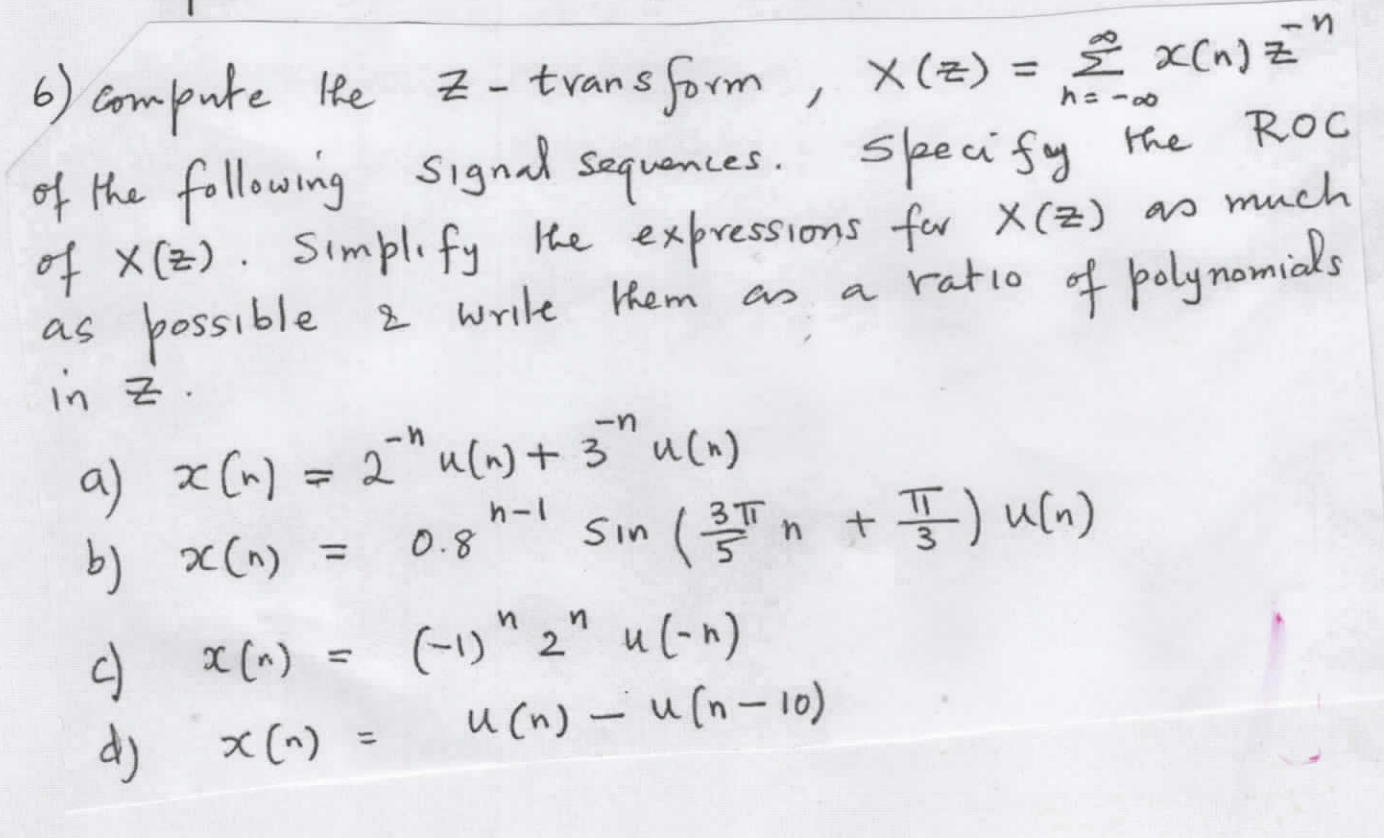 6) Compute the Z-transform, X(Z) = ∑_{n=-∞}^{∞} x(n) Z^{-n}
of the following signal sequences. Specify the ROC
of X(Z). Simplify the expressions for X(Z) as much
as possible & write them as a ratio of polynomials
in Z.
a) x(n) = 2^{-n} u(n) + 3^{-n} u(n)
b) x(n) = 0.8^{n-1} sin(3π/5 n + π/3) u(n)
c) x(n) = (-1)^n 2^n u(-n)
d) x(n) = u(n) - u(n-10)